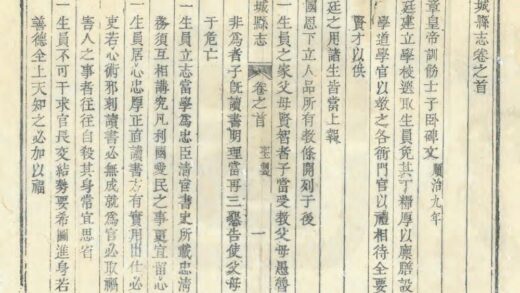 城縣志卷之首
章皇帝訓飭士子卧碑文 順治九年
廷建立學校選取生員免其丁糧厚以廩膳設
學道學官以教之各衙門官以禮相待全要
賢才以供
廷之用諸生皆當上報
國恩下立人品所有教條開列于後
一生員之家父母賢智者子當受教父母愚魯
城縣志 卷之首 一
非為者子旣讀書明理當再三懇告使父母
于危亡
一生員立志當學為忠臣清官書史所載忠清
務須互相講究凡利國愛民之事更宜留心
一生員居心忠厚正直讀書方有實用出仕必
吏若心術邪刺讀書必無成就為官必取禍
害人之事者往往自殺其身常宜思省
一生員不可干求官長交結勢要希圖進身若
善德全上天知之必加以福